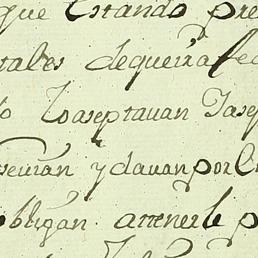 que Estando pre
tales dequeira fec
lo Loaseptauan Yasep
seuian y dauan por C
obligan atenerle p